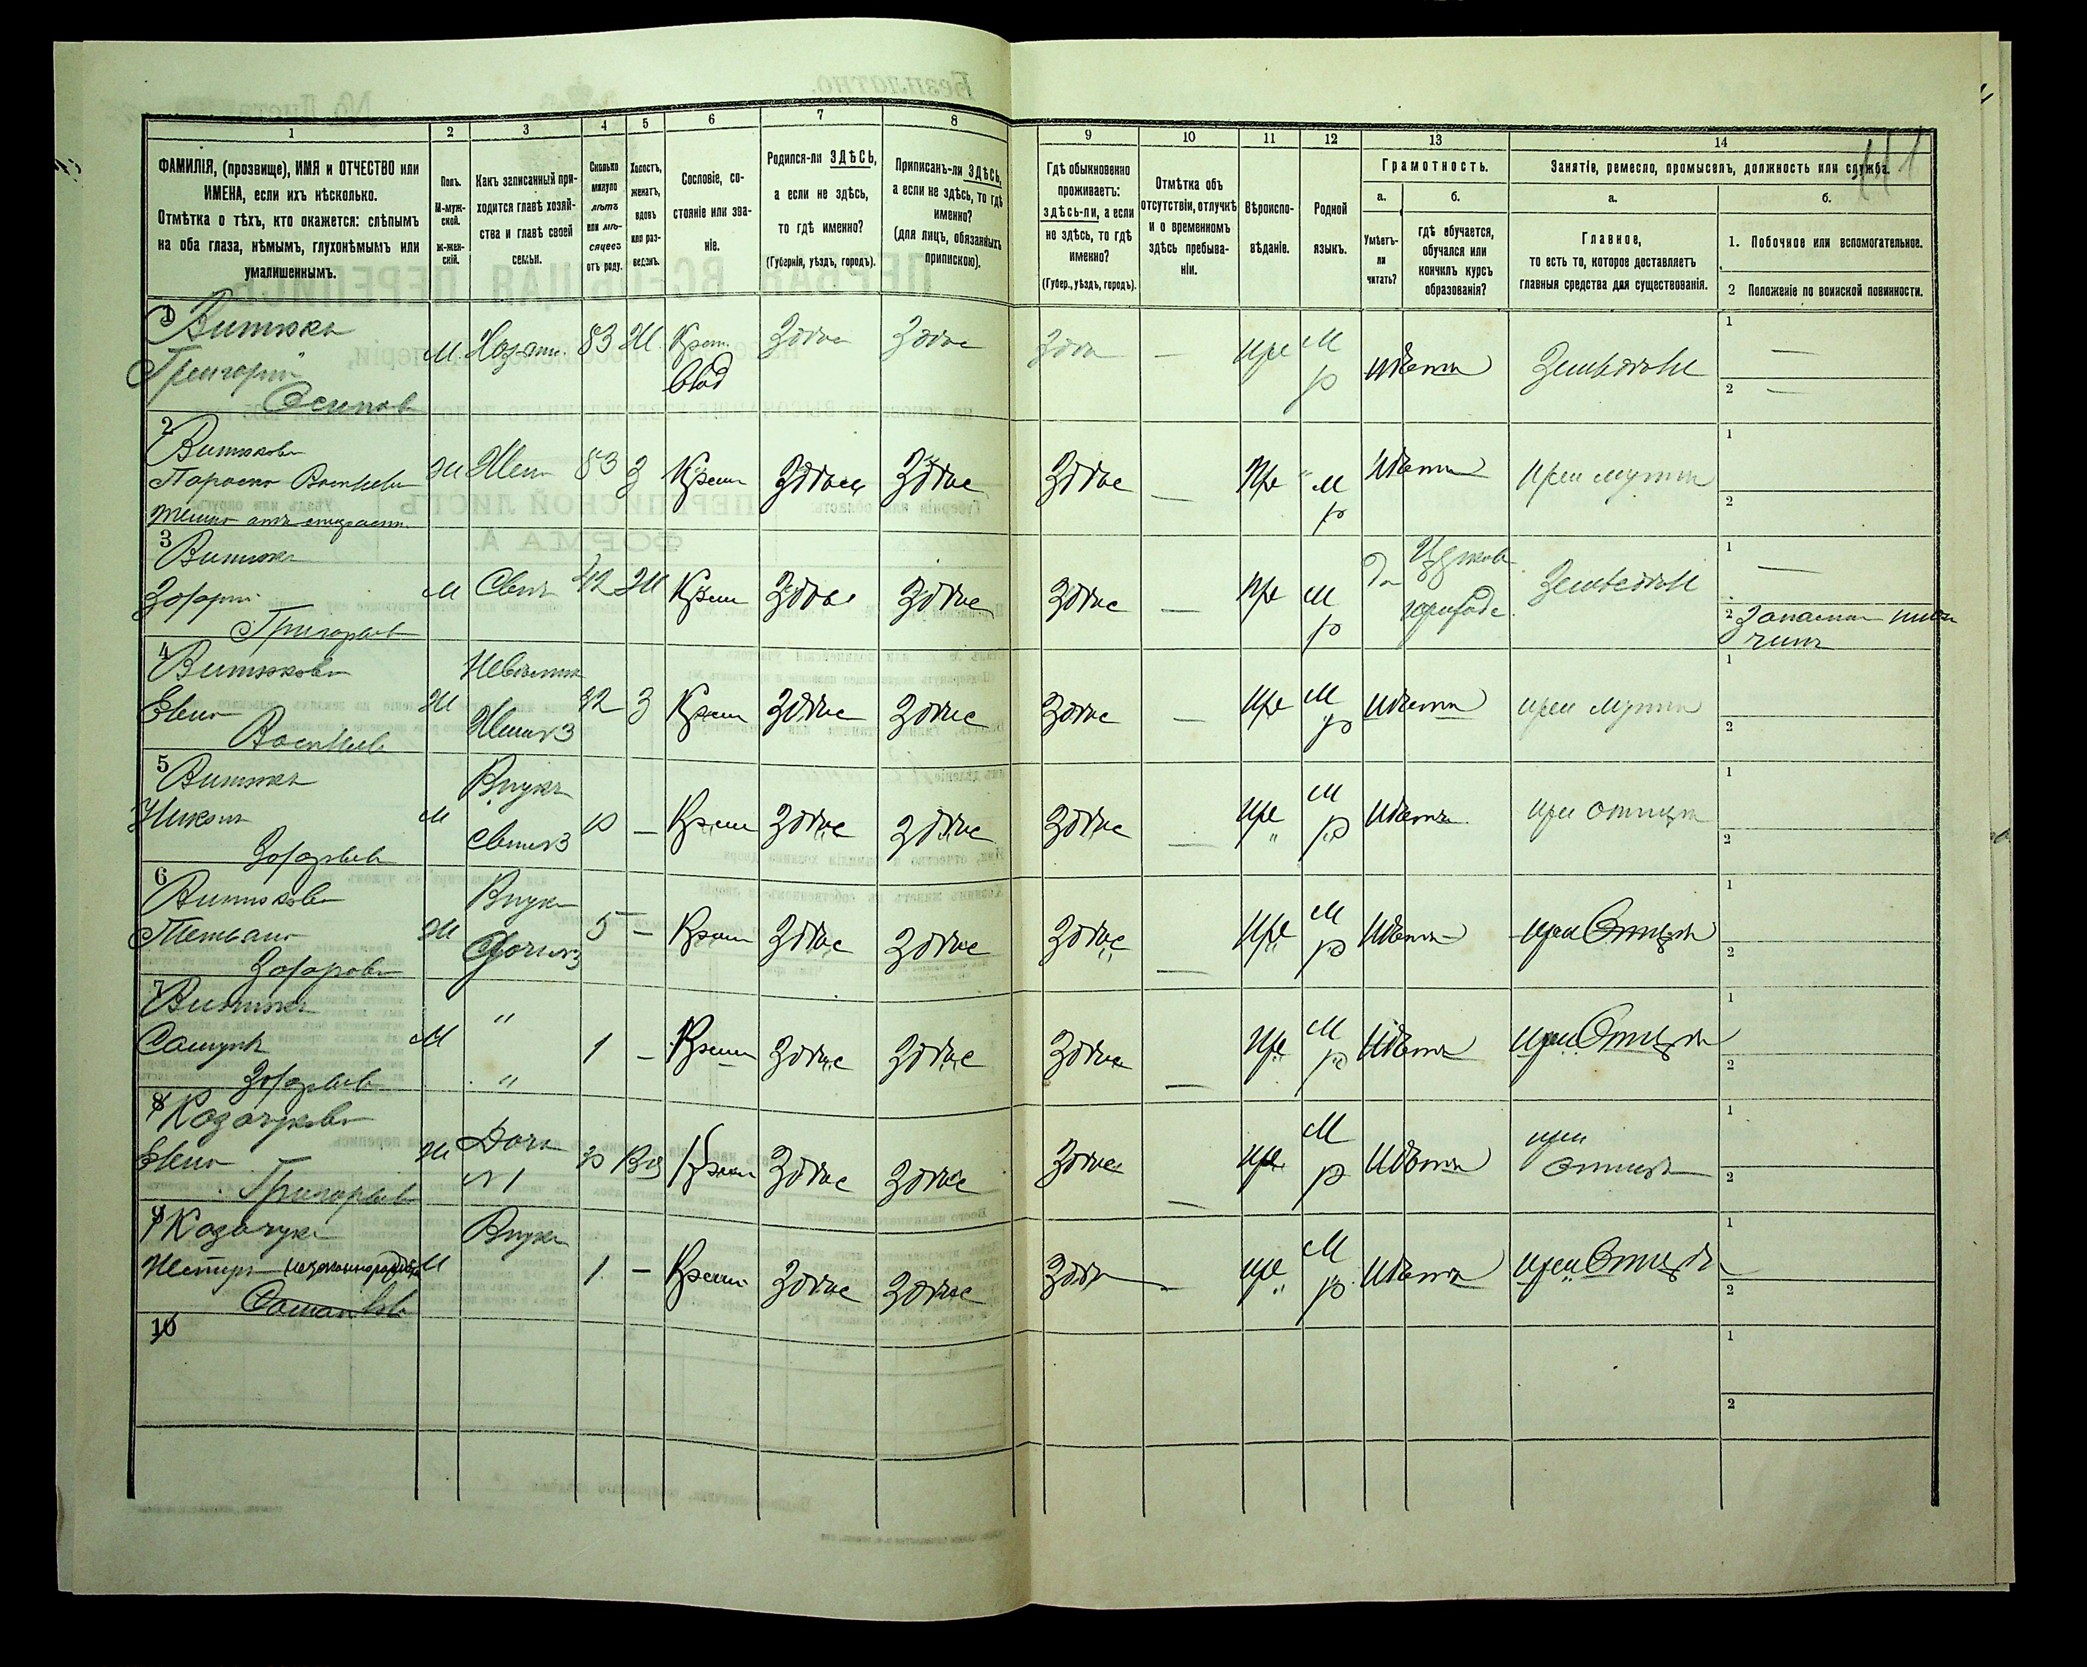 1 2 3 4 5 6 7 8 9 10 11 12 13 14
ФАМИЛІЯ, (прозвище), ИМЯ и ОТЧЕСТВО или
ИМЕНА, если ихъ нѣсколько.
Отмѣтка о тѣхъ, кто окажется: слѣпымъ
на оба глаза, нѣмымъ, глухонѣмымъ или
умалишеннымъ.
Полъ.
М-муж-
ской.
ж-жен-
скій.
Какъ записанный при-
ходится главѣ хозяй-
ства и главѣ своей
семьи.
Сколько
минуло
лѣтъ
или мѣ-
сяцевъ
отъ роду.
Холостъ,
женатъ,
вдовъ
или раз-
веденъ.
Сословіе, со-
стояніе или зва-
ніе.
Родился-ли ЗДѢСЬ,
а если не здѣсь,
то гдѣ именно?
(Губернія, уѣздъ, городъ).
Приписанъ-ли ЗДѢСЬ,
а если не здѣсь, то гдѣ
именно?
(для лицъ, обязанныхъ
припискою).
Гдѣ обыкновенно
проживаетъ:
здѣсь-ли, а если
не здѣсь, то гдѣ
именно?
(Губер., уѣздъ, городъ).
Отмѣтка объ
отсутствіи, отлучкѣ
и о временномъ
здѣсь пребыва-
ніи.
Вѣроиспо-
вѣданіе.
Родной
языкъ.
Грамотность.
а.
Умѣетъ-
ли
читать?
б.
гдѣ обучается,
обучался или
кончилъ курсъ
образованія?
Занятіе, ремесло, промыселъ, должность или служба.
а.
Главное,
то есть то, которое доставляетъ
главныя средства для существованія.
б.
1. Побочное или вспомогательное.
2 Положеніе по воинской повинности.
1
Витюкъ
Григорій
Осиповъ
М Хозяинъ 83 Ж Крест. влад Здѣсь Здѣсь Здѣсь — пра М р нѣтъ
1 —
2 —
2
Витюкова
Параска
Ж Жена 53 З Крест Здѣсь Здѣсь Здѣсь — Пра М р нѣтъ при мужи
1
2
3
Витюкъ
Захарій
Григорьев
М Сынъ 42 Ж Крест Здѣсь Здѣсь Здѣсь — Пра М р да
1 —
2
4
Витюкова
Елена
Васильев
Ж Невѣстка Жена 3 З Крест Здѣсь Здѣсь Здѣсь — пра М р нѣтъ при мужи
1
2
5
Витюкъ
Захарьев
М Внукъ Сынъ 3 10 — Крест Здѣсь Здѣсь Здѣсь — пра М р нѣтъ при отцу
1
2
6
Витюкова
Татьяна
Захарова
Ж Внука Дочь 3 5 — Крест Здѣсь Здѣсь Здѣсь — Пра М р нѣтъ при отцѣ
1
2
7
Витюкъ
Захарьев
М " " 1 — Крест Здѣсь Здѣсь Здѣсь — Пра М р нѣтъ при отцѣ
1
2
8
Козачукова
Елена
Григорьев
Ж Дочь № 1 Крест Здѣсь Здѣсь Здѣсь — пра М р нѣтъ при отцѣ
1
2
9
Козачукъ
Несторъ незаконнорожд
М Внукъ 1 — Крест Здѣсь Здѣсь Здѣсь — пра М р нѣтъ при отцѣ
1
2
10
1
2